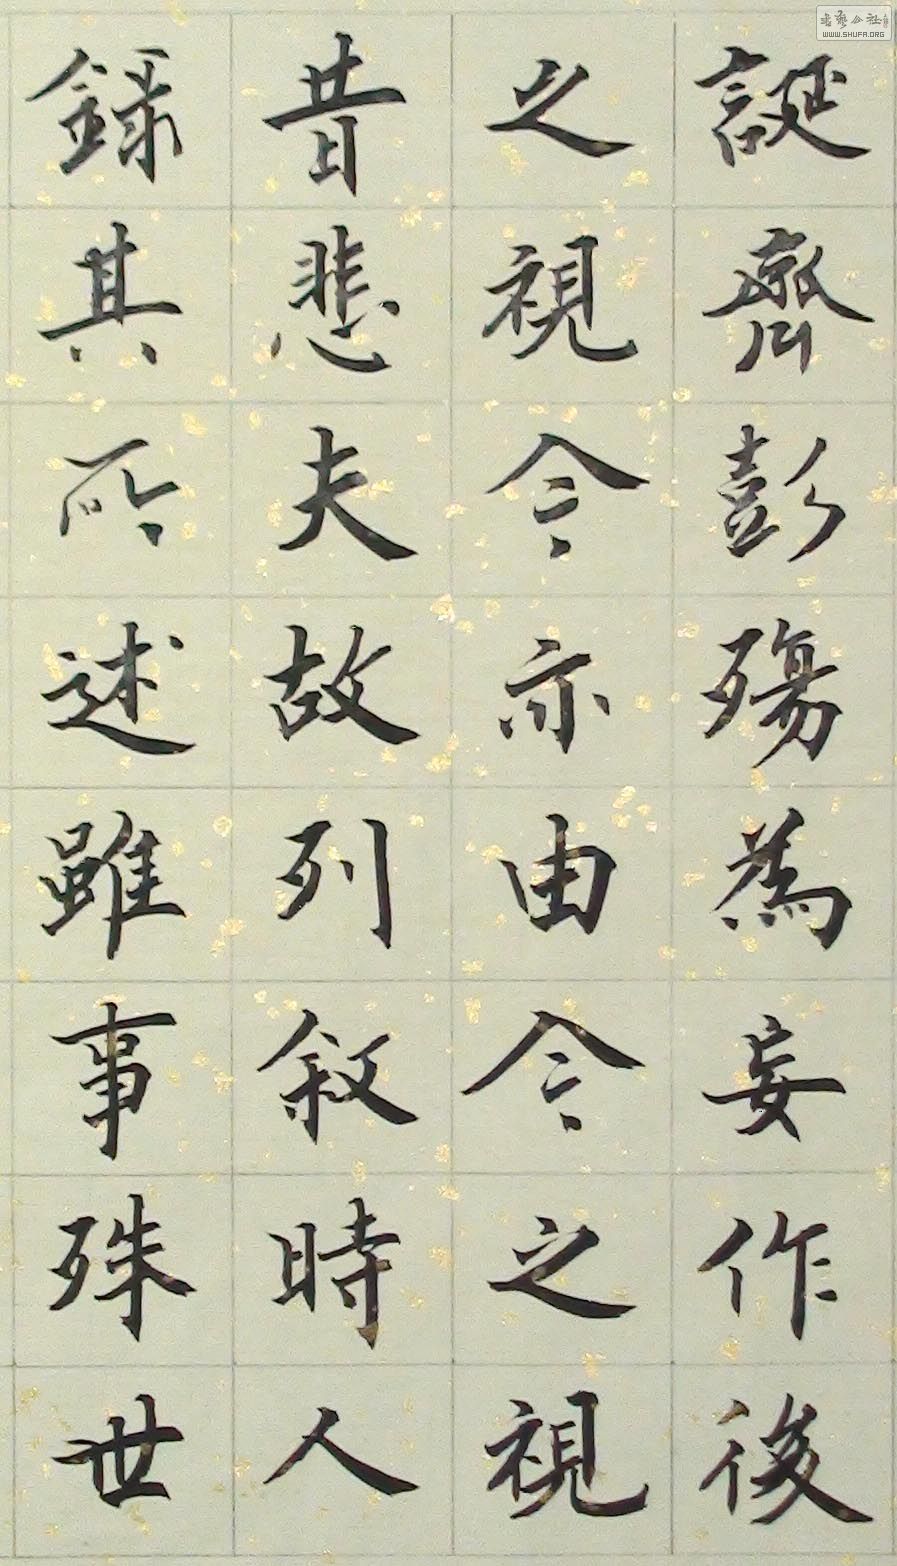 誕齊彭殤為妄作後
之視今亦由今之視
昔悲夫故列敘時人
錄其所述雖事殊世
書藝公社
WWW.SHUFA.ORG